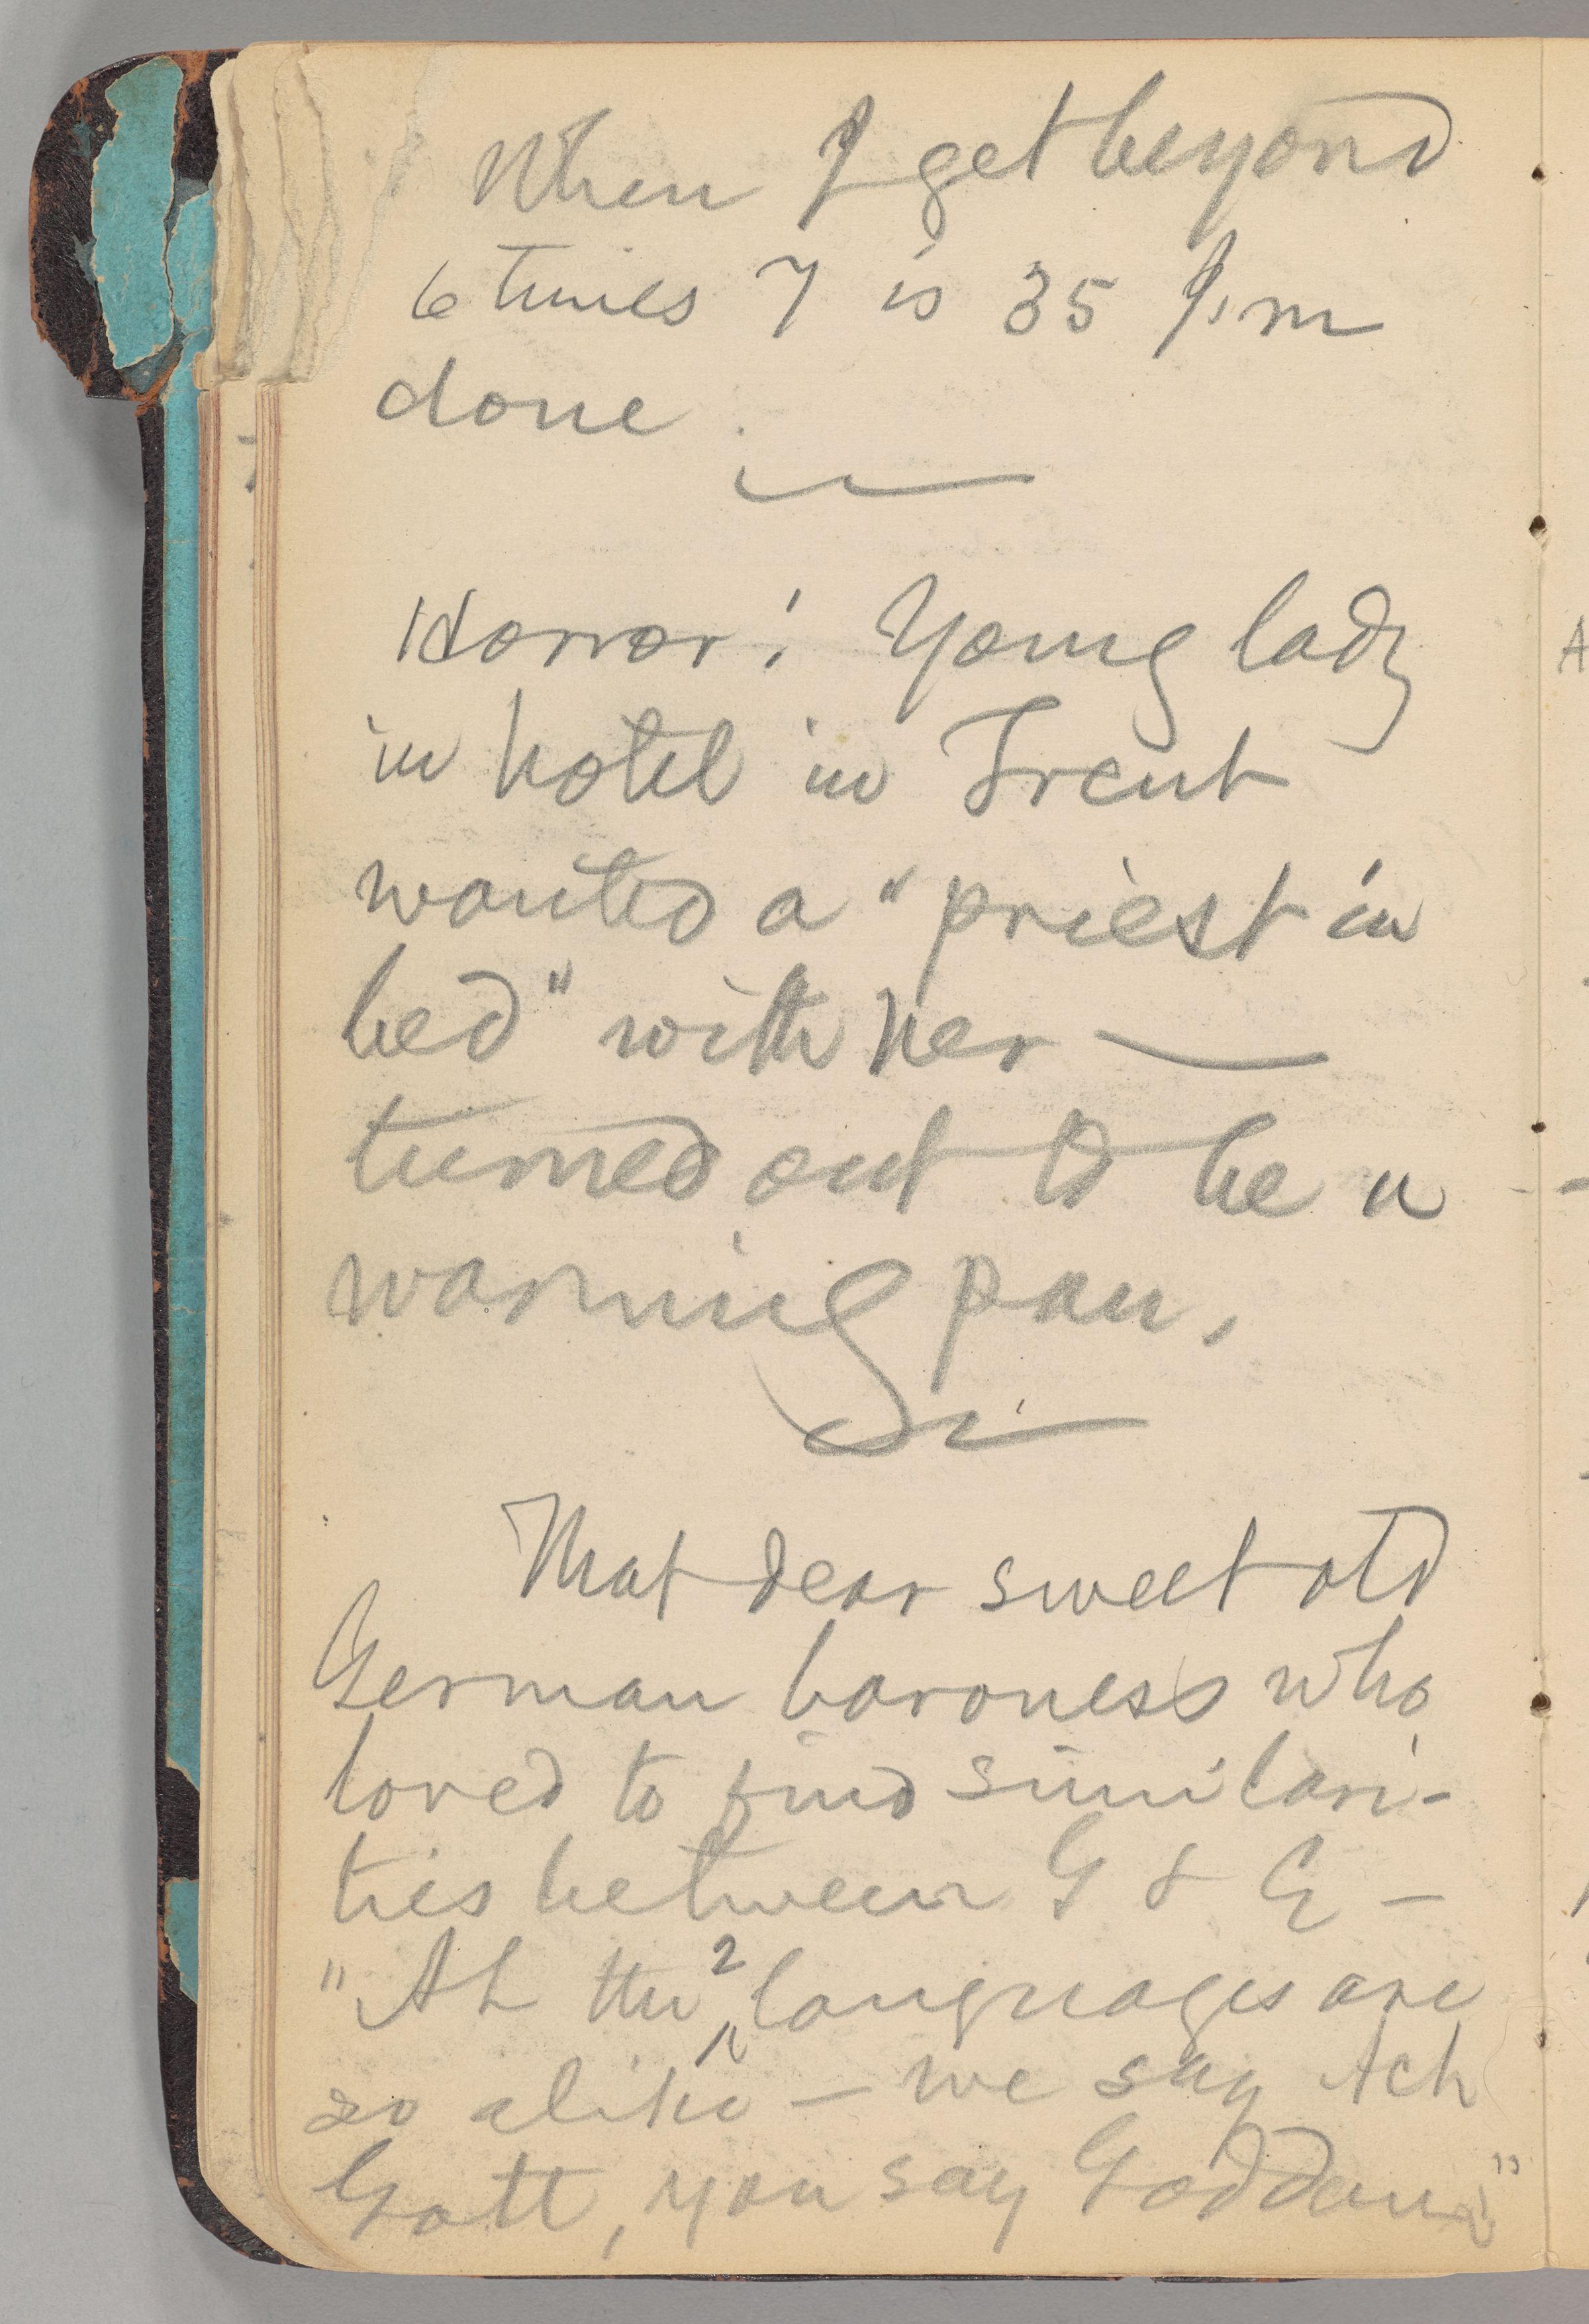 When I get beyond
6 times 7 is 35 I'm
done.
Horror! Young lady
in hotel in Trent
wanted a "priest in
bed" with her —
turned out to be a
warming pan.
That dear sweet old
German baroness who
loved to find similari-
ties between G & E —
"Ah the 2 languages are
so alike — we say Ach
Gott, you say Goddam"